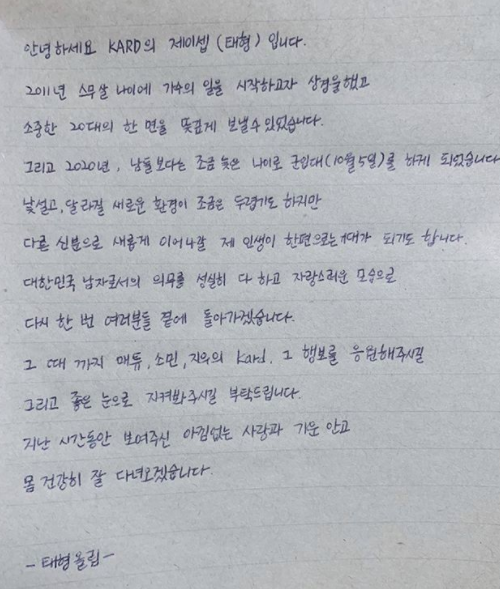 안녕하세요 KARD의 제이셉 (태형) 입니다.
2011년 스무살 나이에 가수의 일을 시작하고자 상경을 했고
소중한 20대의 한 면을 뜻깊게 보낼수 있었습니다.
그리고 2020년, 남들보다는 조금 늦은 나이로 군입대(10월5일)를 하게 되었습니다
낯설고, 달라질 새로운 환경이 조금은 두렵기도 하지만
다른 신분으로 새롭게 이어나갈 제 인생이 한편으로는 기대가 되기도 합니다.
대한민국 남자로서의 의무를 성실히 다 하고 자랑스러운 모습으로
다시 한 번 여러분들 곁에 돌아가겠습니다.
그 때 까지 매튜, 소민, 지우의 Kard. 그 행보를 응원해주시길
그리고 좋은 눈으로 지켜봐주시길 부탁드립니다.
지난 시간동안 보여주신 아낌없는 사랑과 기운 안고
몸 건강히 잘 다녀오겠습니다.
- 태형 올림 -